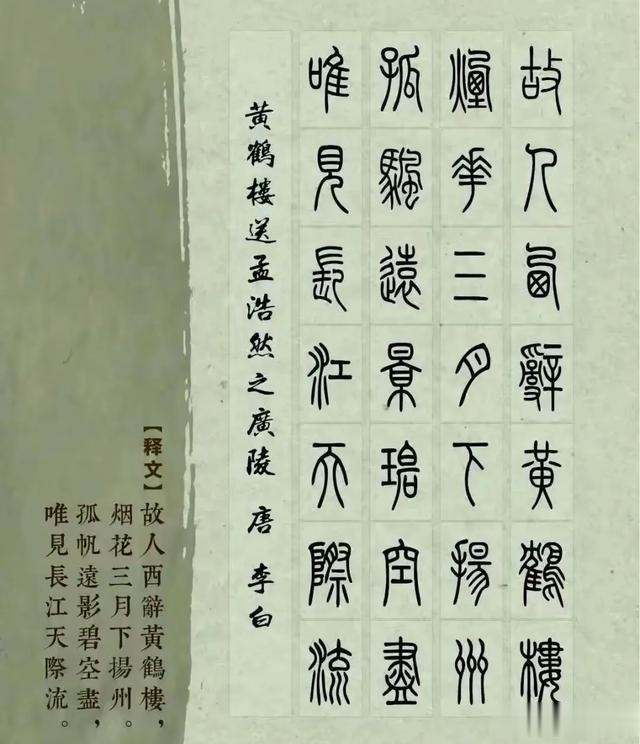 故人西辭黃鶴樓
煙花三月下揚州
孤颿遠景碧空盡
唯見長江天際流
黃鶴樓送孟浩然之廣陵 唐 李白
【释文】
故人西辭黃鶴樓，
烟花三月下揚州。
孤帆遠影碧空盡，
唯見長江天際流。